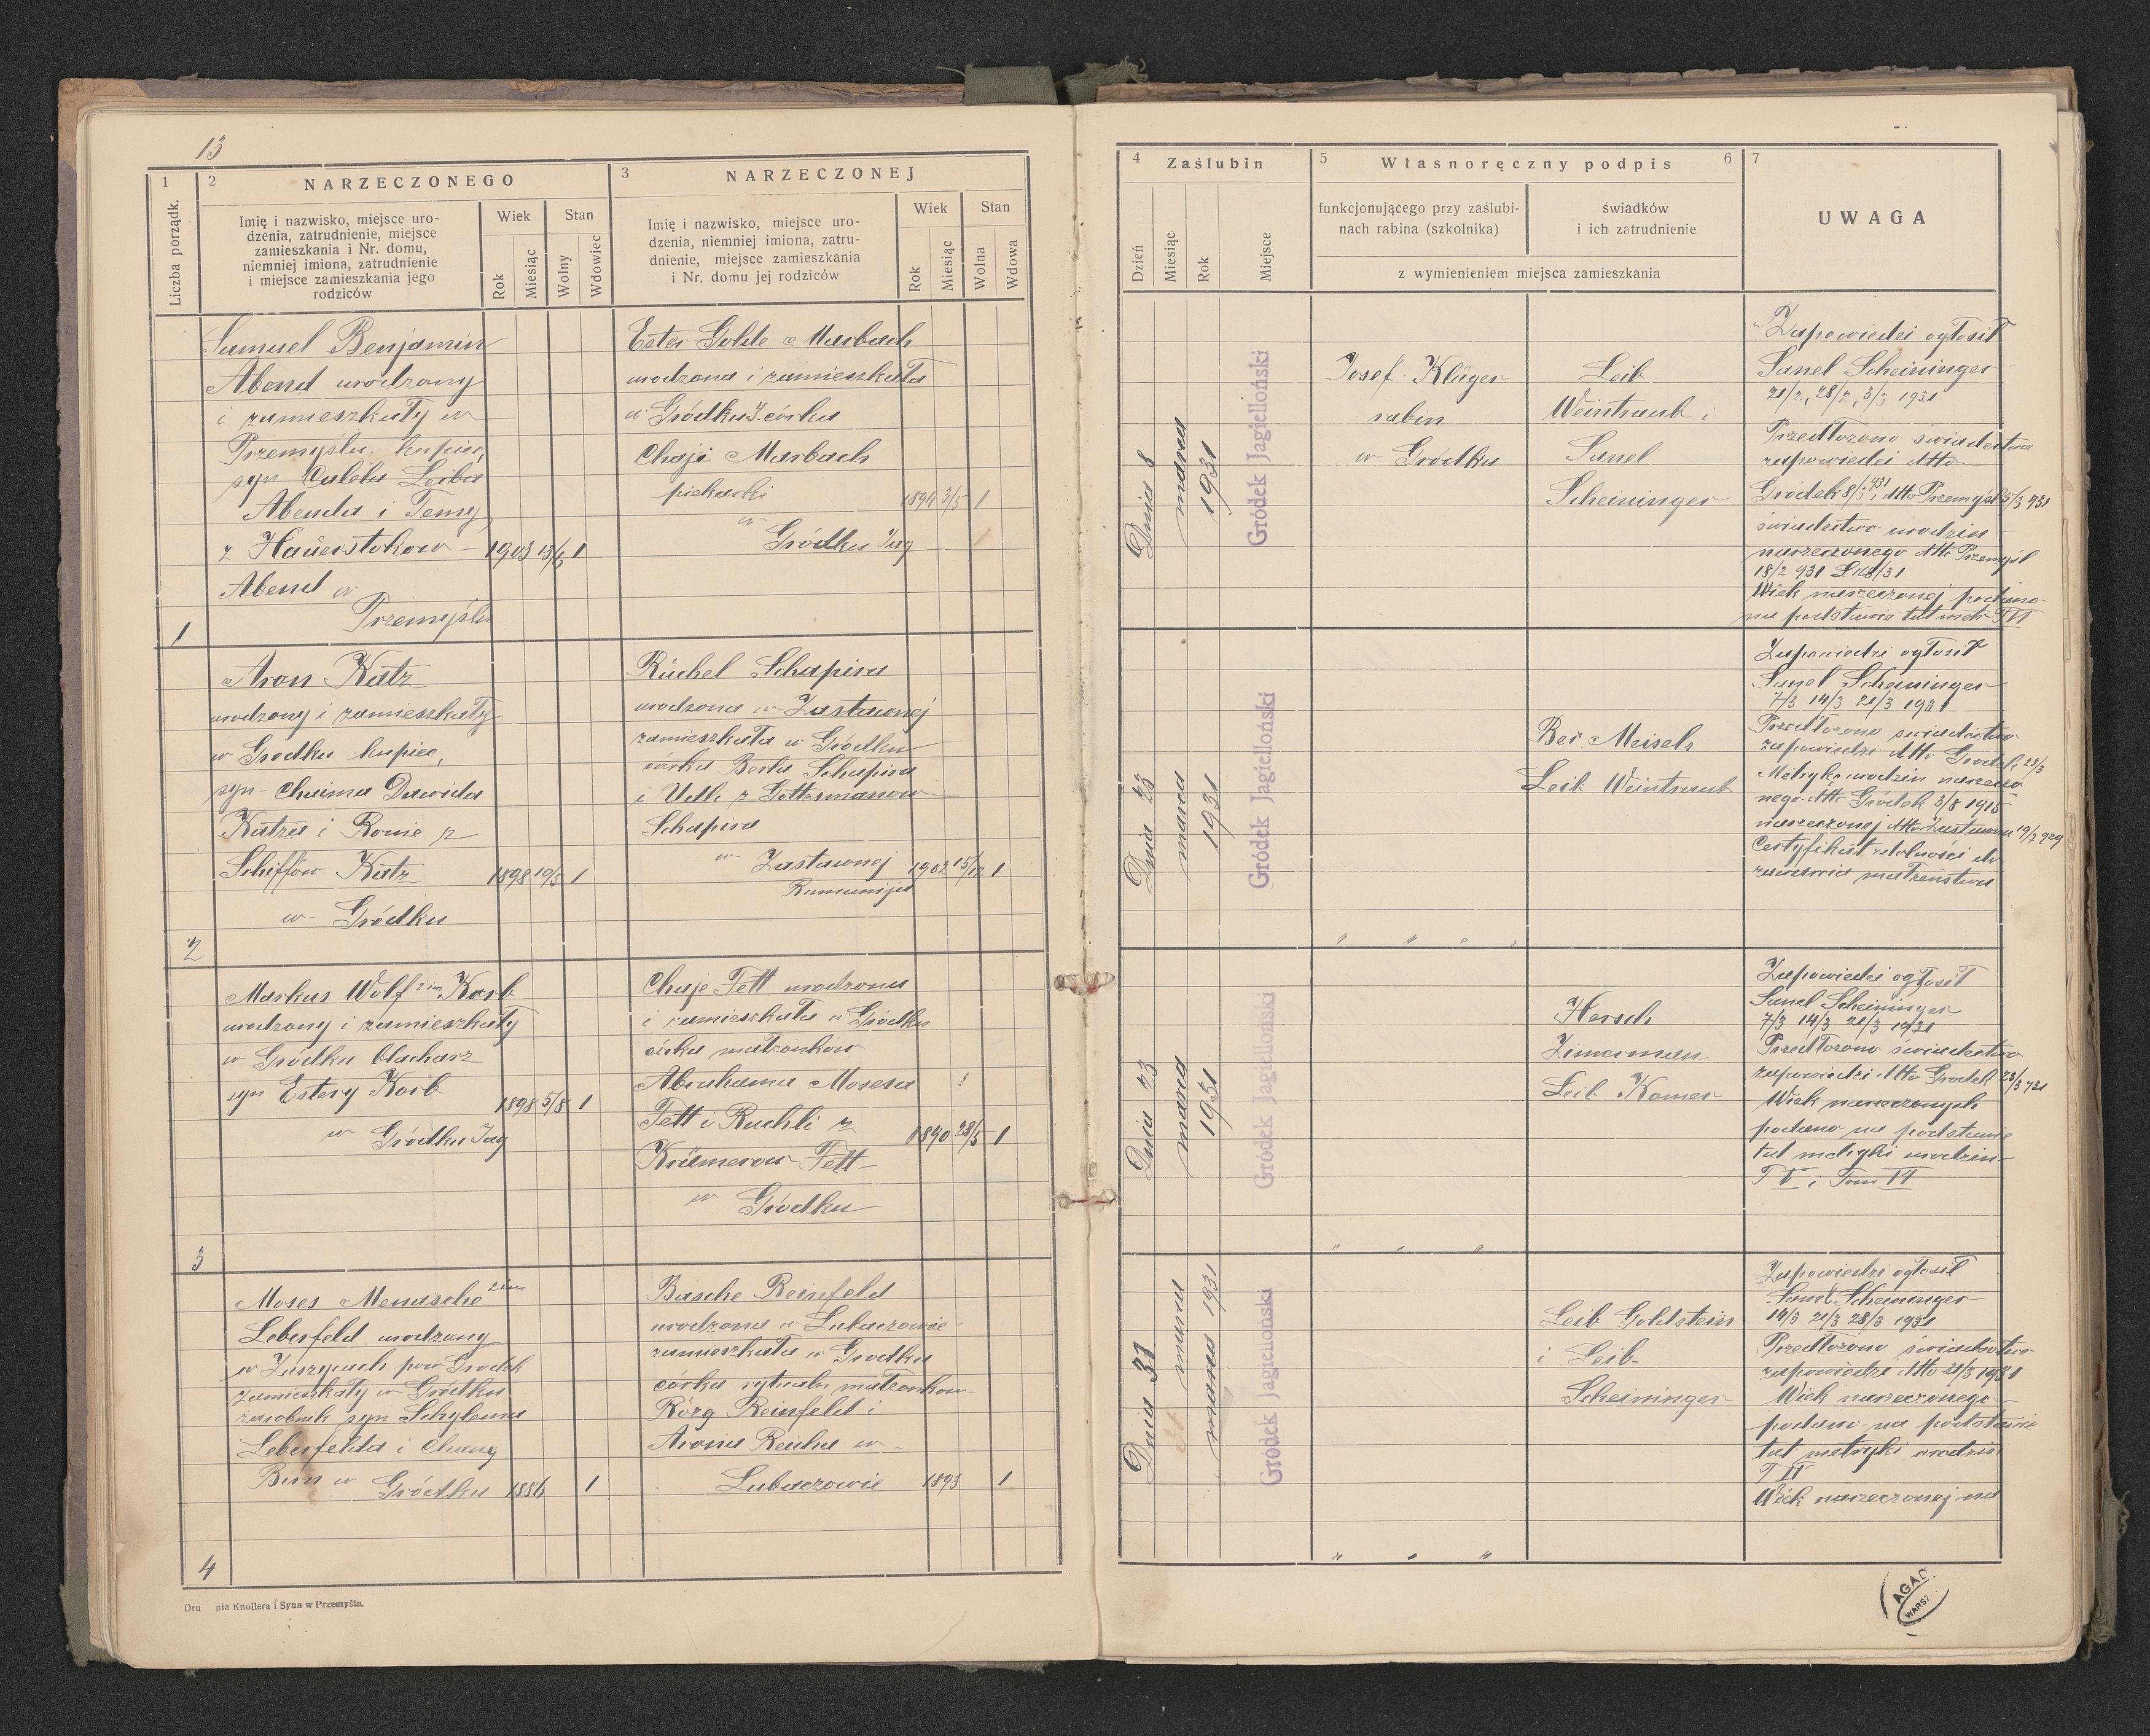 13
1
2
NARZECZONEGO
3
NARZECZONEJ
Liczba porządk.
Imię i nazwisko, miejsce uro-
dzenia, zatrudnienie, miejsce
zamieszkania i Nr. domu,
niemniej imiona, zatrudnienie
i miejsce zamieszkania jego
rodziców
Wiek
Stan
Rok
Miesiąc
Wolny
Wdowiec
Imię i nazwisko, miejsce uro-
dzenia, niemniej imiona, zatru-
dnienie, miejsce zamieszkania
i Nr. domu jej rodziców
Wiek
Stan
Rok
Miesiąc
Wolna
Wdowa
4
Zaślubin
5
Własnoręczny podpis
6
7
Dzień
Miesiąc
Rok
Miejsce
funkcjonującego przy zaślubi-
nach rabina (szkolnika)
świadków
i ich zatrudnienie
z wymienieniem miejsca zamieszkania
UWAGA
1
Samuel Benjamin
Abend urodzony
i zamieszkały w
Przemyślu kupiec,
syn Caleba Leiba
Abenda i Temy
z
Abend w
Przemyślu
1903 13/6 1
Ester Golde Marbach
urodzona i zamieszkała
w Gródku J. córka
Chaji Marbach
piekarki
w
Gródku Jag
1894 3/5 1
Dnia 8
marca
1931
Gródek Jagielloński
Josef Klüger
rabin
w Gródku
Leib
Weintraub i
Sanel
Scheininger
Zapowiedzi ogłosił
Sanel Scheininger
21/2, 28/2, 3/3 1931
Przedłożono świadectwo
zapowiedzi dtto
Gródek 8/3 931 i dtto Przemyśl 5/3 931
świadectwo urodzin
narzeczonego dtto Przemyśl
18/2 931
Wiek narzeczonej podano
na podstawie tut metr
2
Aron Katz
urodzony i zamieszkały
w Gródku kupiec,
syn Chaima Dawida
Katza i Ronie z
Schiffów Katz
w Gródku
1898 10/5 1
Ruchel Schapira
urodzona w Zastawnej
zamieszkała w Gródku
córka Berla Schapira
i Udli z Gottesmanów
Schapira
w Zastawnej
Rumunija
1902 15/12 1
Dnia 23
marca
1931
Gródek Jagielloński
" " " "
Ber Meisels
Leib Weintraub
Zapowiedzi ogłosił
Sanel Scheininger
7/3 14/3 21/3 1931
Przedłożono świadectwo
zapowiedzi dtto Gródek 23/3
Metryka urodzin narzeczo
nego dtto Gródek 3/8 1915
narzeczonej dtto Zastawna
Certyfikat zdolności do
zawarcia małżeństwa
3
Markus Wolf 2 im Korb
urodzony i zamieszkały
w Gródku blacharz
syn Estery Korb
w Gródku Jag
1898 5/8 1
Chaje Fett urodzona
i zamieszkała w Gródku
córka małżonków
Abrahama Mosesa
Fett i Ruchli z
Krämerów Fett
w Gródku
1890 28/5 1
Dnia 23
marca
1931
Gródek Jagielloński
" " "
Hersch
Zimerman
Leib Kamer
Zapowiedzi ogłosił
Sanel Scheininger
7/3 14/3 21/3 1931
Przedłożono świadectwo
zapowiedzi dtto Gródek 23/3 931
Wiek narzeczonych
podano na podstawie
tut metryki urodzin
T V i Tom VI
4
Moses Menasche 2 im
Leberfeld urodzony
w pow Gródek
zamieszkały w Gródku
zarobnik syn
Leberfelda i Chany
Birn w Gródku
1886 1
Basche Reinfeld
urodzona w Lubaczowie
zamieszkała w Gródku
córka rytualn małżonków
Rózy Reinfeld i
Arona Reicha w
Lubaczowie
1893 1
Dnia 31
marca
marca 1931
Gródek Jagielloński
" " "
Leib Goldstein
i Leib
Scheininger
Zapowiedzi ogłosił
Sanel Scheininger
14/3 21/3 28/3 1931
Przedłożono świadectwo
zapowiedzi dtto 31/3 1931
Wiek narzeczonego
podano na podstawie
tut metryki urodzin
Wiek narzeczonej na
Dru nia Knollera i Syna w Przemyślu.
AGAD
WARSZ